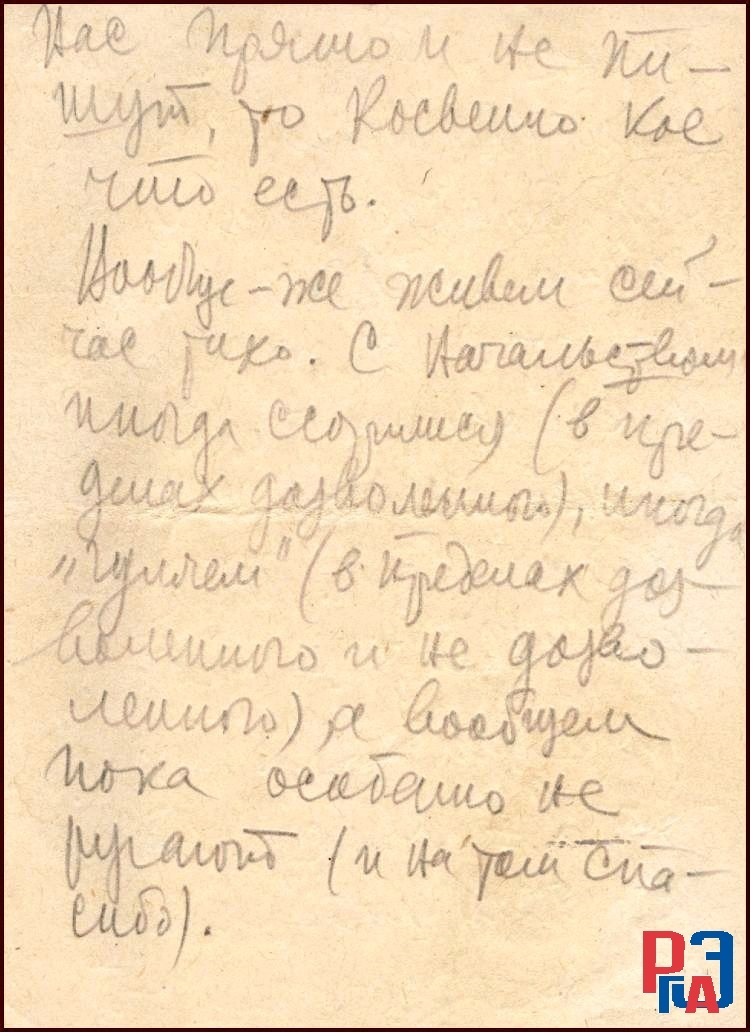 нас прямо и не пи-
шут, то косвенно кое
что есть.
Вообще-же живем сей-
час тихо. С начальством
иногда ссоримся (в пре-
делах дозволенного), иногда
„гуляем" (в пределах доз-
воленного и не дозво-
ленного), а вообщем
пока особенно не
ругают (и на том спа-
сибо).
РГАЭ